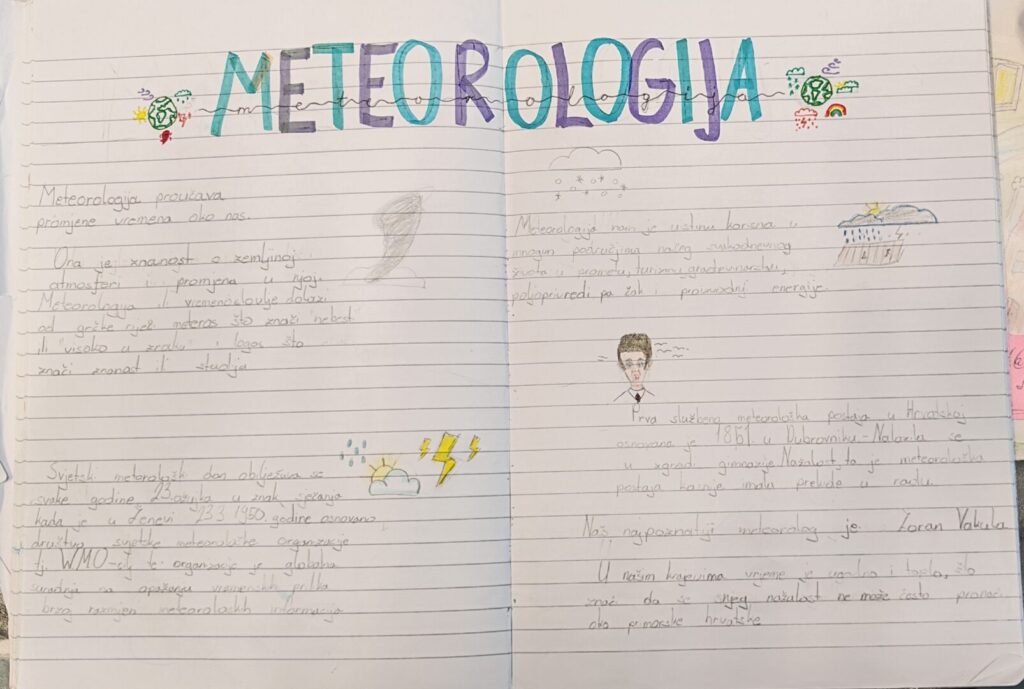 METEOROLOGIJA
meteorologija
Meteorologija proučava
promjene vremena oko nas.
Ona je znanost o zemljinoj
atmosferi i promjena u njoj.
Meteorologija ili vremenoslovlje dolazi
od grčke riječi meteros što znači "nebest"
ili "visoko u zraku" i logos što
znači znanost ili studija
Svjetski meteorološki dan obilježava se
svake godine 23.ožujka u znak sjećanja
kada je u Ženevi 23.3.1950. godine osnovano
društvo svjetske meteorološke organizacije
tj. WMO-cilj te organizacije je globalna
suradnja na opažanju vremenskih prilika
brzog razmjen meteoroloških informacija
Meteorologija nam je uistinu korisna u
mnogim područjima našeg svakodnevnog
života u prometu, turizmu, građevinarstvu,
poljoprivredi pa čak i proizvodnji energije.
Prva službena meteorološka postaja u Hrvatskoj
osnovana je 1851 u Dubrovniku-Nalazila se
u zgradi gimnazije.Nažalost, ta je meteorološka
postaja kasnije imala prekide u radu.
Naš najpoznatiji meteorolog je: Zoran Vakula
U našim krajevima vrijeme je ugodno i toplo, što
znači da se snjeg nažalost ne može često pronaći
oko primorske hrvatske